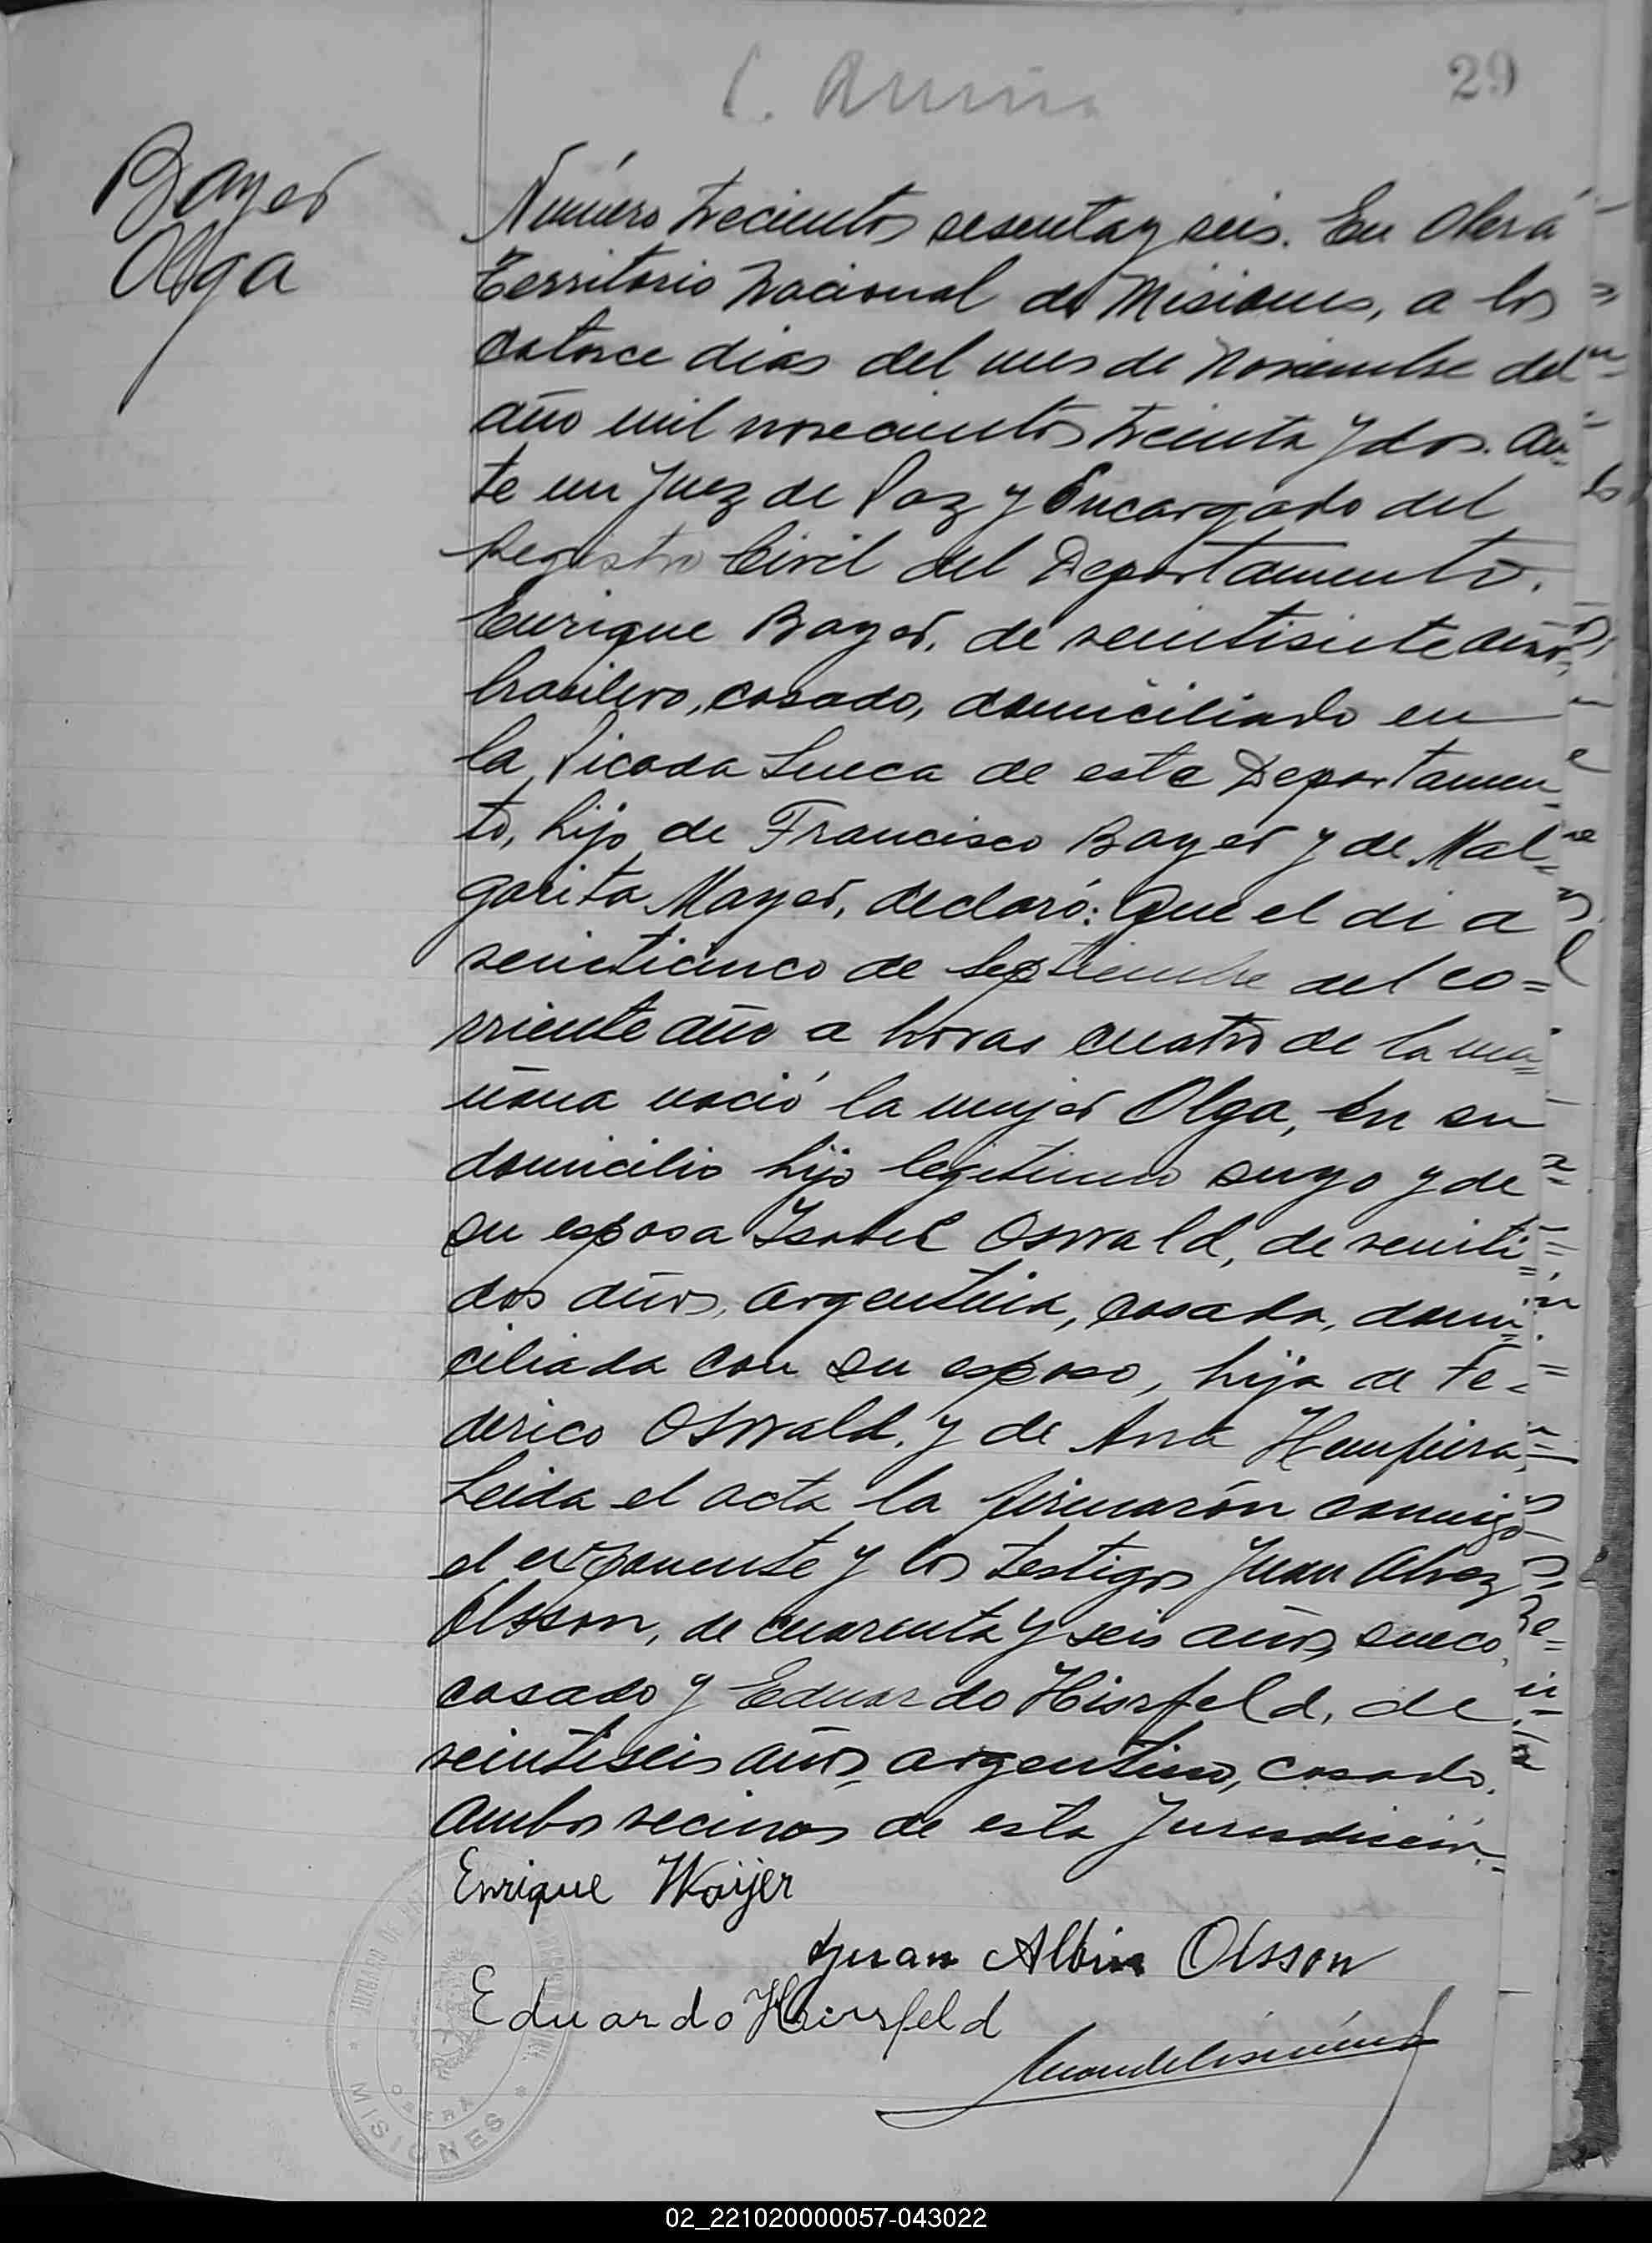 29
Bayer
Olga
Número trecientos sesenta y seis. En Oberá
Territorio Nacional de Misiones, a los
catorce dias del mes de Noviembre del
año mil novecientos treinta y dos. An-
te un Juez de Paz y Encargado del
Registro Civil del Departamento.
Enrique Bayer, de veintisiete años,
brasilero, casado, domiciliado en
la Picada Sueca de este Departamen-
to, hijo de Francisco Bayer y de Mal-
garita Mayer, declaró: Que el di a
veinticinco de Septiembre del co=
rriente año a horas cuatro de la ma=
ñana nació la mujer Olga, en su
domicilio hijo legitimo suyo y de
su esposa Isabel Oswald, de veinti=
dos años, argentina, casada, domi=
ciliada con su esposo, hija de Fe=
derico Oswald. y de Ana
Leida el acta la firmarón conmigo
el exponente y los testigos Juan Alvez
Olsson, de cuarenta y seis años, sueco,
casado y Eduardo Hirsfeld, de
veintiseis años, argentino, casado.
Ambos vecinos de esta Jurisdición.=
Enrique Waijer
Juan Albin Olsson
Eduardo Heirsfeld
OBERA
MISIONES
02_221020000057-043022